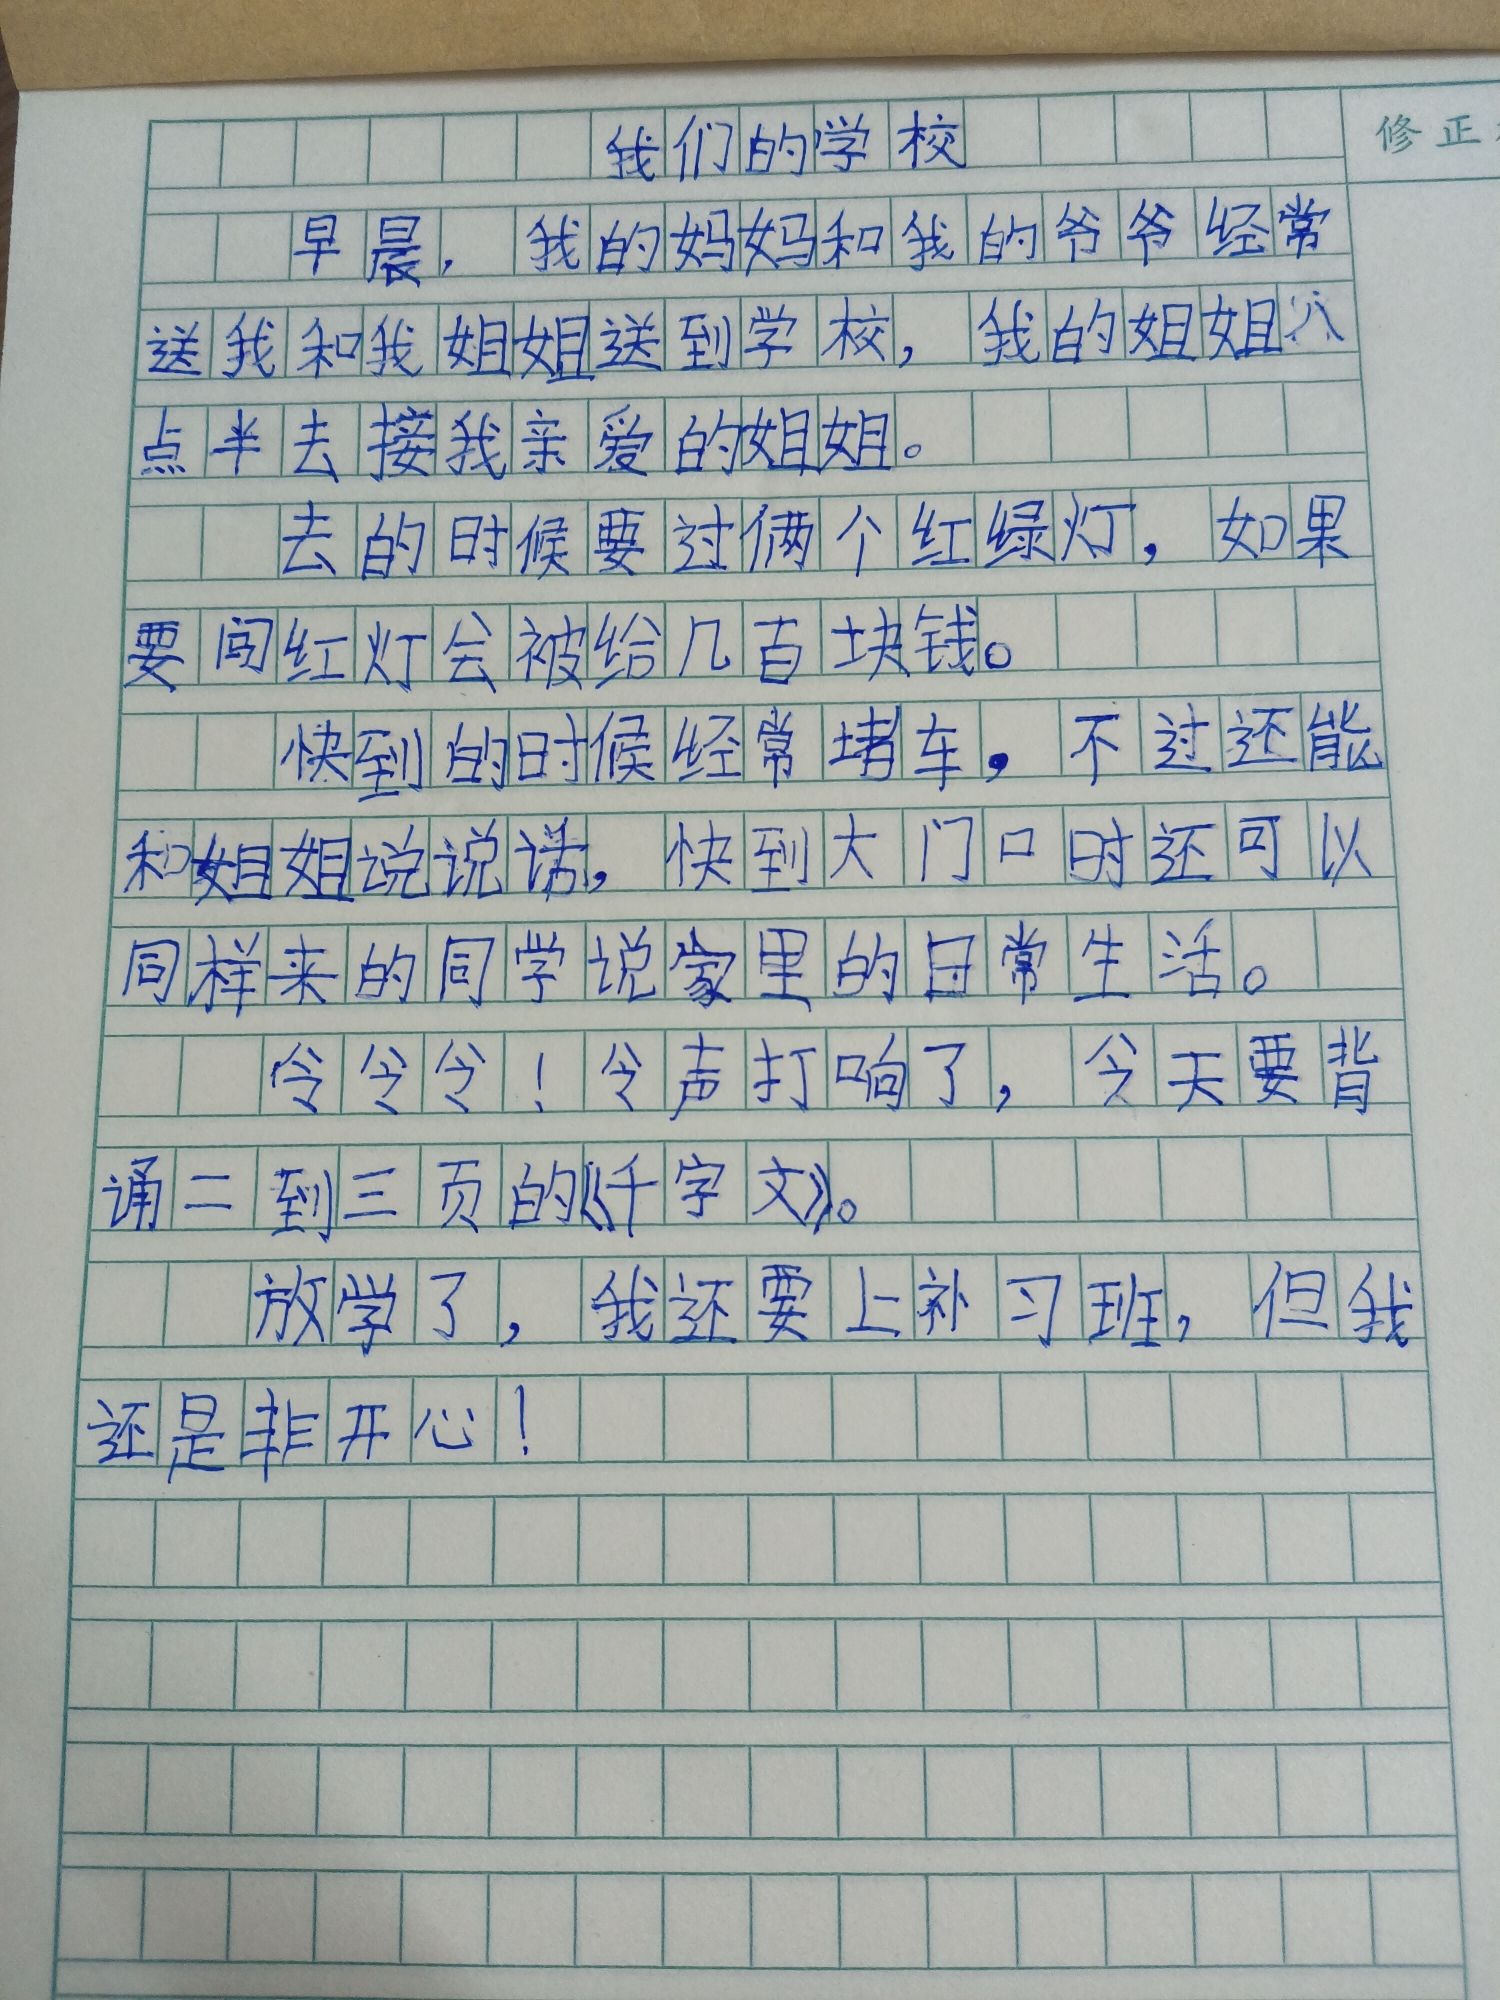 我们的学校
修正
早晨，我的妈妈和我的爷爷经常
送我和我姐姐送到学校，我的姐姐八
点半去接我亲爱的姐姐。
去的时候要过俩个红绿灯，如果
要闯红灯会被给几百块钱。
快到的时候经常堵车，不过还能
和姐姐说说话，快到大门口时还可以
同样来的同学说家里的日常生活。
令令令！令声打响了，今天要背
诵二到三页的《千字文》。
放学了，我还要上补习班，但我
还是非开心！